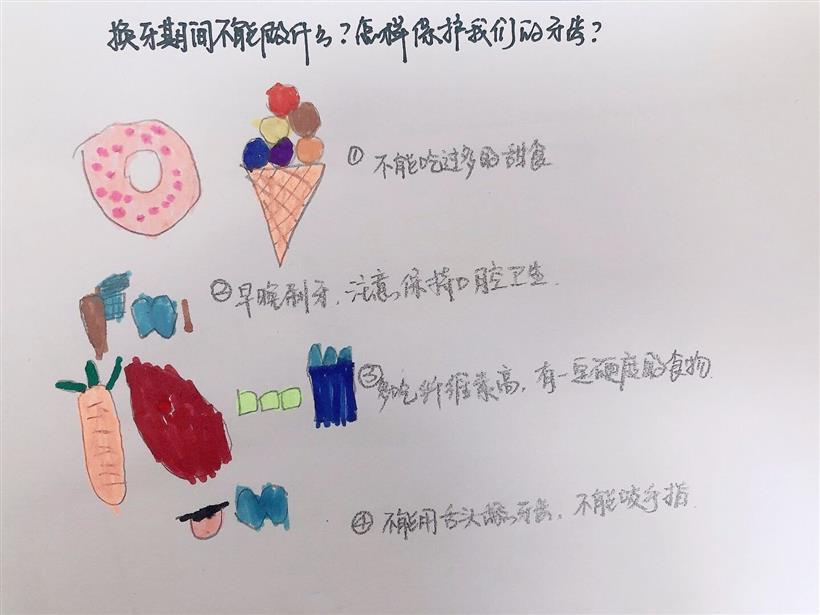 换牙期间不能做什么？怎样保护我们的牙齿？
①不能吃过多的甜食
②早晚刷牙，注意保持口腔卫生．
③多吃纤维素高，有一定硬度的食物
④不能用舌头舔牙齿，不能咬手指